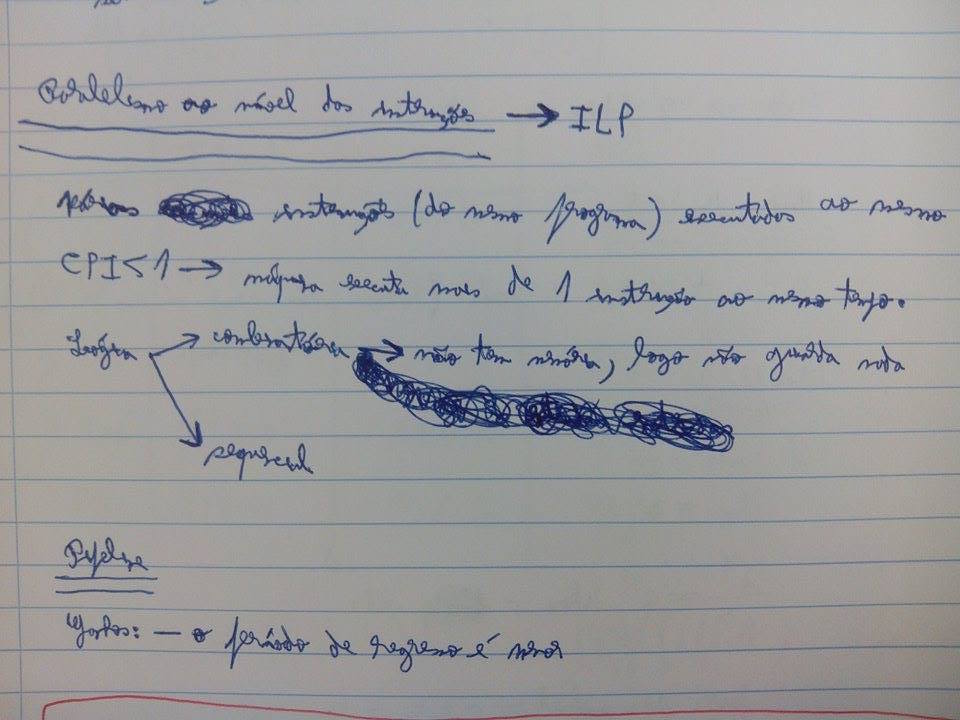 Paralelismo ao nível das instruções → ILP
Várias instruções (do mesmo programa) executadas ao mesmo
CPI<1 → máquina executa mais de 1 instrução ao mesmo tempo.
Lógica → combinatória → não tem memória, logo não guarda nada
→ sequencial
Pipeline
— o período de relógio é menor